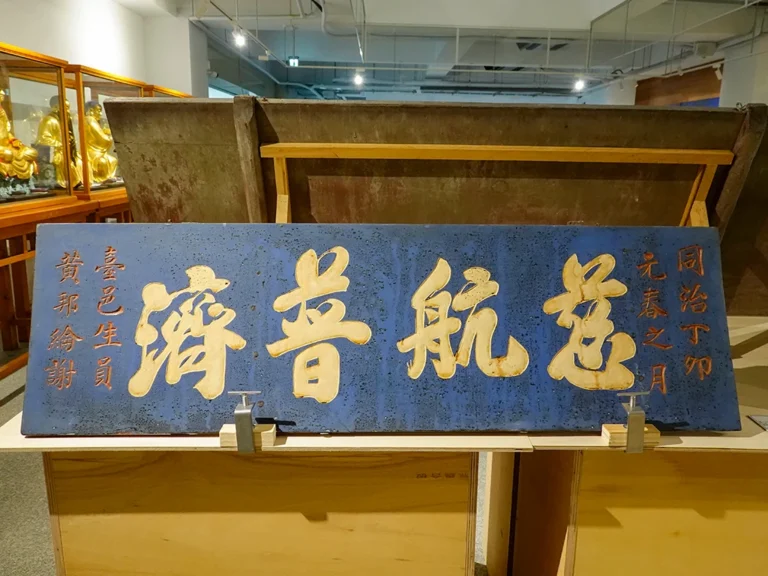 同治丁卯
元春之月
慈航普濟
臺邑生員
黃邦綸謝